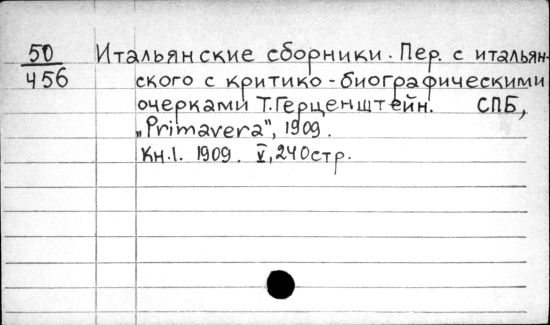 50
456
Итальянские сборники. Пер. с итальян-
ского с критико-биографическими
очерками Т. Герценштейн. СПБ,
„Primavera", 1909.
Кн.1. 1909. V, 240стр.